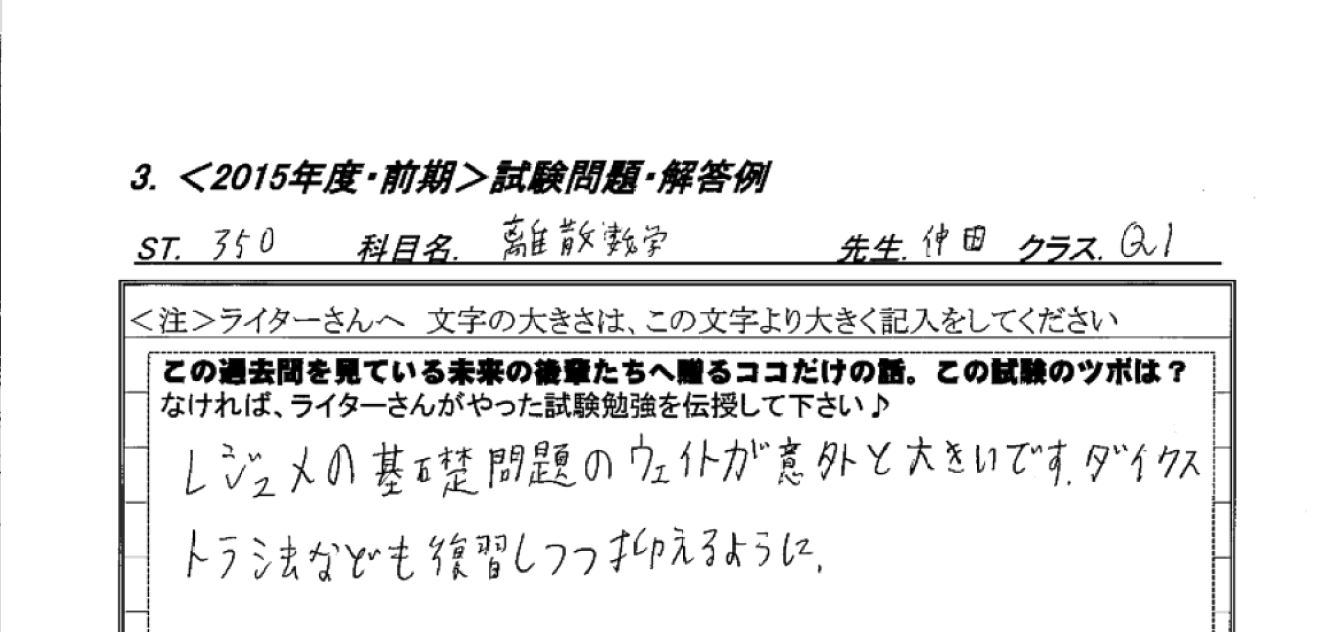 3. ＜2015年度・前期＞試験問題・解答例
ST. 350 科目名. 離散数学 先生. 仲田 クラス. Q1
＜注＞ライターさんへ 文字の大きさは、この文字より大きく記入をしてください
この過去問を見ている未来の後輩たちへ贈るココだけの話。この試験のツボは？
なければ、ライターさんがやった試験勉強を伝授して下さい♪
レジュメの基礎問題のウェイトが意外と大きいです.ダイクス
トラ法なども復習しつつ抑えるように.